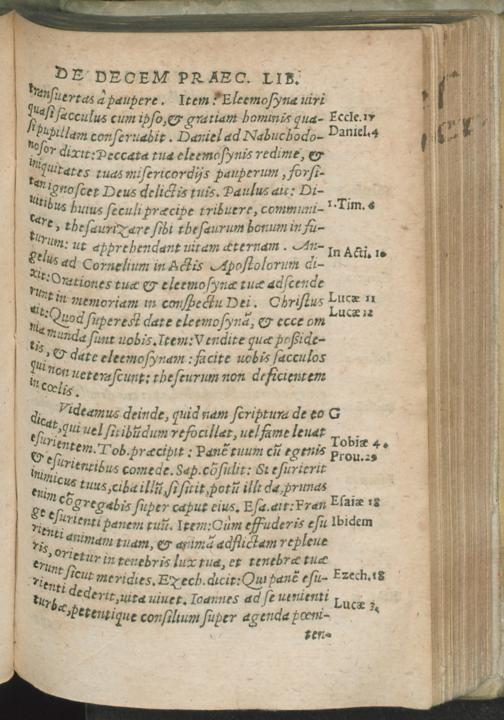 DE DECEM PRAEC. LIB.
transuertas à paupere. Item: Eleemosyna uiri
quasi sacculus cum ipso, & gratiam hominis qua- Eccle. 17
si pupillam conseruabit. Daniel ad Nabuchodo- Daniel. 4
nosor dixit: Peccata tua eleemosynis redime, &
iniquitates tuas misericordijs pauperum, forsi-
tan ignoscet Deus delictis tuis. Paulus ait: Di-
uitibus huius seculi præcipe tribuere, communi- 1. Tim. 6
care, thesaurizare sibi thesaurum bonum in fu-
turum: ut apprehendant uitam æternam. An-
gelus ad Cornelium in Actis Apostolorum di- In Acti. 10
xit: Orationes tuæ & eleemosynæ tuæ adscende
runt in memoriam in conspectu Dei. Christus Lucæ 11
ait: Quod superest date eleemosynã, & ecce om Lucæ 12
nia munda sunt uobis. Item: Vendite quæ poßide-
tis, & date eleemosynam: facite uobis sacculos
qui non ueterascunt: theseurum non deficientem
in cœlis.
Videamus deinde, quid nam scriptura de eo G
dicat, qui uel sitibũdum refocillat, uel fame leuat
esurientem. Tob. præcipit: Panẽ tuum cũ egenis Tobiæ 4.
& esurientibus comede. Sap. cõsulit: Si esurierit Prou. 29
inimicus tuus, ciba illũ, si sitit, potũ illi da, prunas
enim cõgregabis super caput eius. Esa. ait: Fran Esaiæ 18
ge esurienti panem tuũ. Item: Cùm effuderis esu Ibidem
rienti animam tuam, & animã adflictam repleue
ris, orietur in tenebris lux tua, et tenebræ tuæ
erunt sicut meridies. Ezech. dicit: Qui panẽ esu- Ezech. 18
rienti dederit, uita uiuet. Ioannes ad se uenienti
turbæ, petentique consilium super agenda pœni- Lucæ 3.
ten-